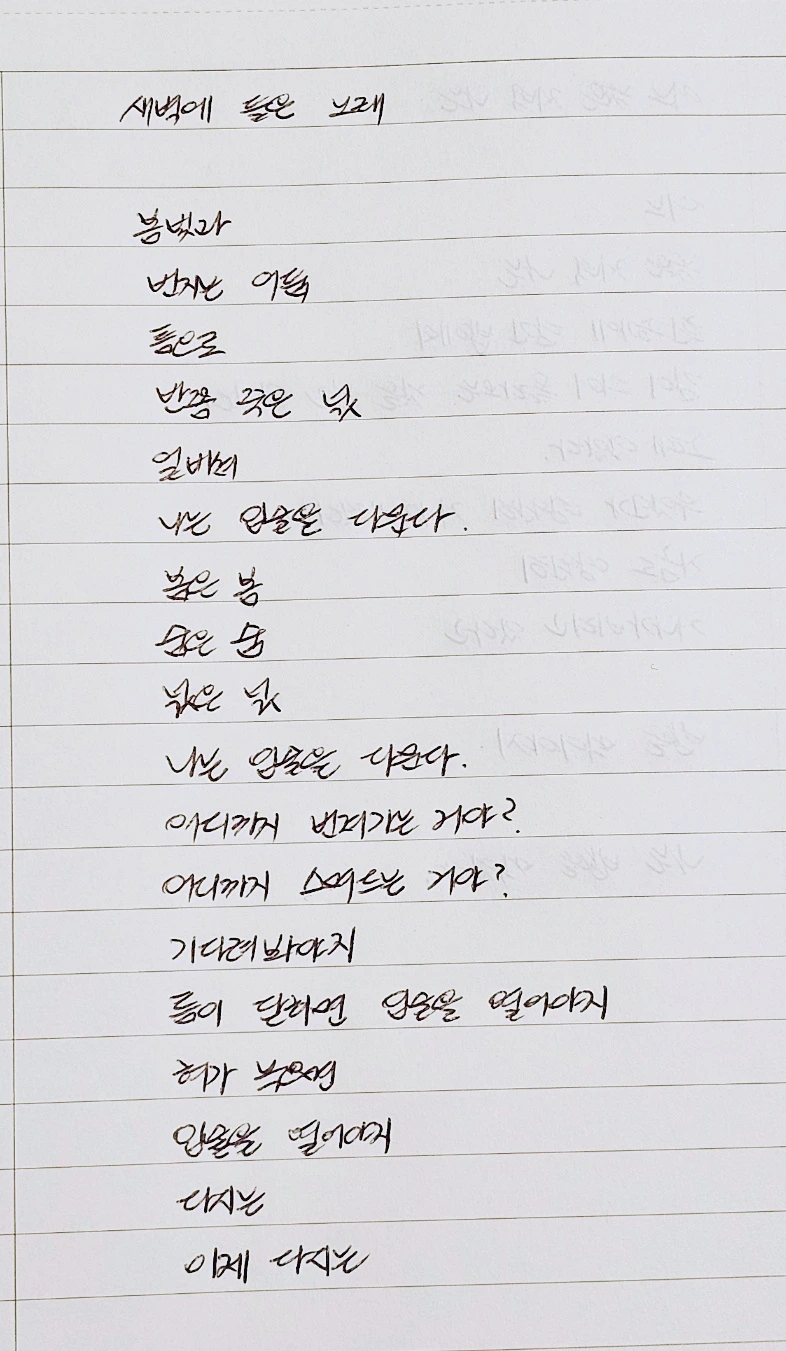 새벽에 들은 노래
봄빛과
번지는 어둠
틈으로
반쯤 죽은 넋
얼비쳐
나는 입술을 다문다.
봄은 봄
숨은 숨
넋은 넋
나는 입술을 다문다.
어디까지 번져가는 거야?
어디까지 스며드는 거야?
기다려봐야지
틈이 닫히면 입술을 열어야지
혀가 녹으면
입술을 열어야지
다시는
이제 다시는